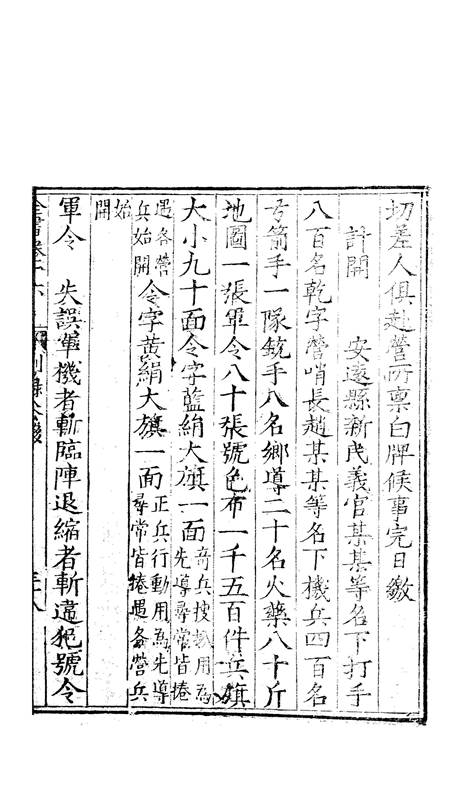 切差人俱赴營所稟白牌候事完日繳
計開 安遠縣新民義官某某等名下打手
八百名乾字營哨長趙某某等名下機兵四百名
弓箭手一隊銃手八名鄉導二十名火藥八十斤
地圖一張軍令八十張號色布一千五百件兵旗
大小九十面令字藍絹大旗一面奇兵搜扒用為先導尋常皆捲
遇各營兵始開令字黃絹大旗一面正兵行動用為先導尋常皆捲遇各營兵
始開
軍令 失誤軍機者斬臨陣退縮者斬違犯號令
全書卷十六 別錄 三十八